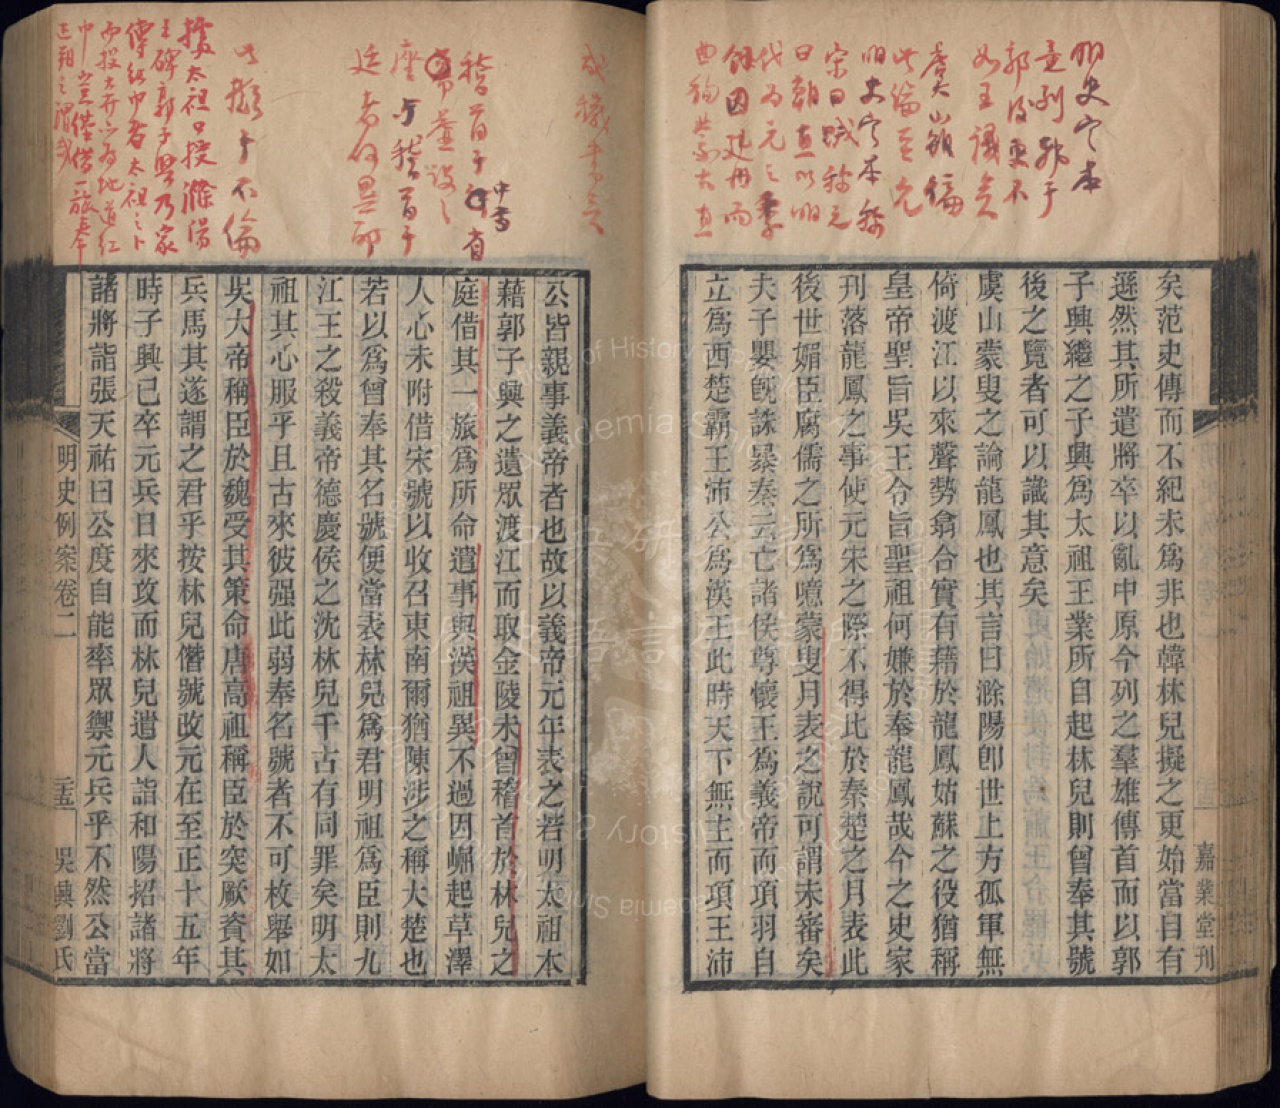 矣范史傳而不紀未爲非也韓林兒擬之更始當自有
遜然其所遣將卒以亂中原今列之羣雄傳首而以郭
子興繼之子興爲太祖王業所自起林兒則曾奉其號
後之覽者可以識其意矣
虞山蒙叟之論龍鳳也其言曰滁陽卽世上方孤軍無
倚渡江以來聲勢翕合實有藉於龍鳳姑蘇之役猶稱
皇帝聖旨吳王令旨聖祖何嫌於奉龍鳳哉今之史家
刊落龍鳳之事使元宋之際不得比於秦楚之月表此
後世媚臣腐儒之所爲噫蒙叟月表之說可謂未審矣
夫子嬰旣誅暴秦云亡諸侯尊懷王爲義帝而項羽自
立爲西楚霸王沛公爲漢王此時天下無主而項王沛
嘉業堂刊
公皆親事義帝者也故以義帝元年表之若明太祖本
藉郭子興之遺眾渡江而取金陵未曾稽首於林兒之
庭借其一旅爲所命遣事與漢祖異不過因崛起草澤
人心未附借宋號以收召東南爾猶陳涉之稱大楚也
若以爲曾奉其名號便當表林兒爲君明祖爲臣則九
江王之殺義帝德慶侯之沈林兒千古有同罪矣明太
祖其心服乎且古來彼强此弱奉名號者不可枚舉如
吳大帝稱臣於魏受其策命唐高祖稱臣於突厥資其
兵馬其遂謂之君乎按林兒僭號改元在至正十五年
時子興已卒元兵日來攻而林兒遣人詣和陽招諸將
諸將詣張天祐曰公度自能率眾禦元兵乎不然公當
明史例案卷二
吳興劉氏
明史定本
意列於
郭後更不
如王議矣
此論甚允
明史定本稱
宋曰賊稱元
曰朝直以明
代爲元之
餘因建州而
此擬于不倫
據太祖授滁陽
王碑郭子興乃家